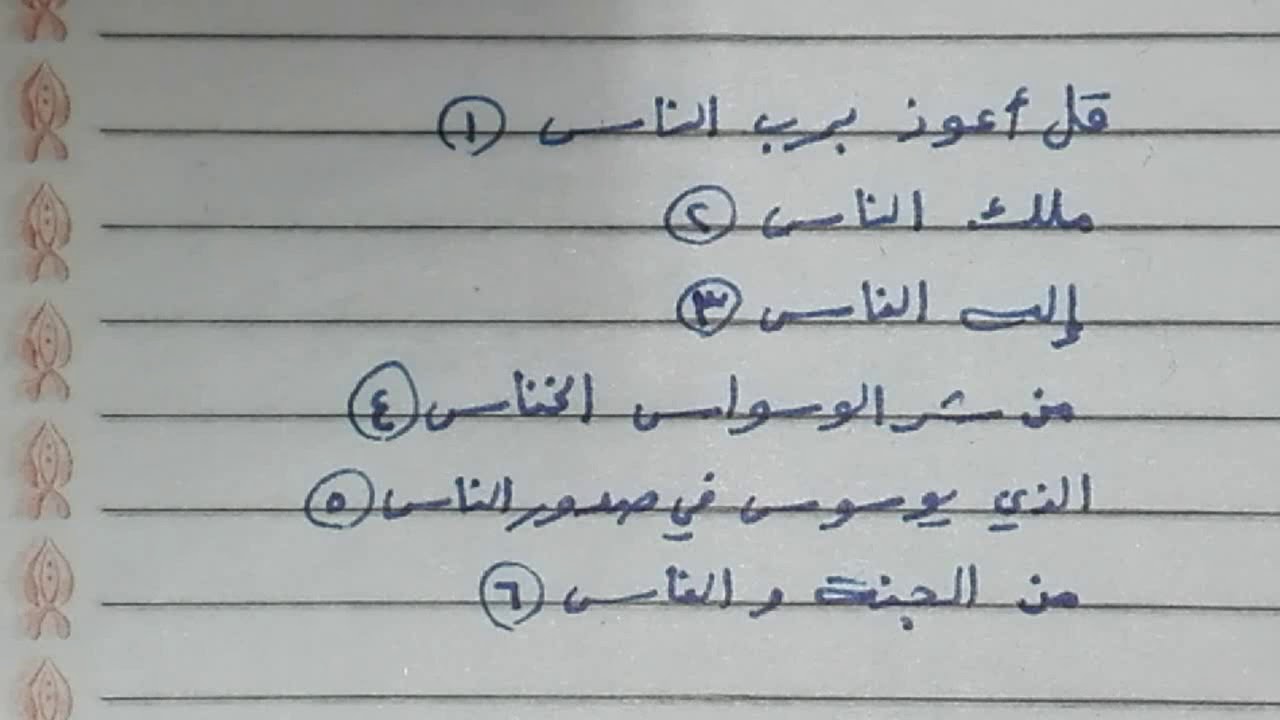 قل أعوذ برب الناس ١
ملك الناس ٢
إله الناس ٣
من شر الوسواس الخناس ٤
الذي يوسوس في صدور الناس ٥
من الجنة والناس ٦